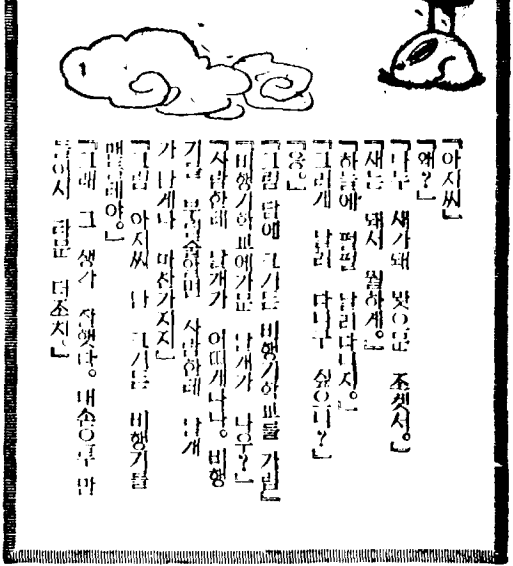 『아저씨』
『왜?』
『나두 새가돼 밧으문 조켓서。』
『새는 돼서 뭘하게。』
『하늘에 펄펄 날러다니지。』
『그러개 날러 다니구 싶으니?』
『응。』
『그럼 담에 크거든 비행기학교를 가렴』
『비행기학교에가문 날개가 나우?』
『사람한테 날개가 어떠케나니。비행
기만 부리술하면 사람한테 날개
가 난게나 마찬가지지』
『그럼 아저씨 난 크거든 비행기를
맨들테야。』
『그래 그 생각 잘햇다。내손으루 만
들어서 타문 더조치。』